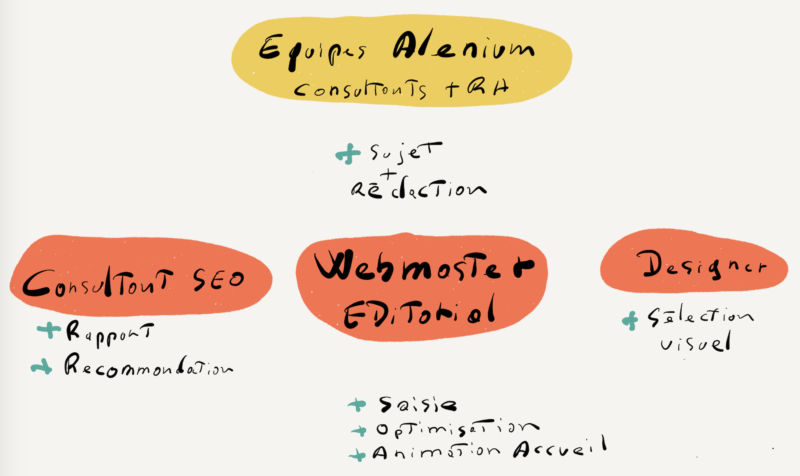 Equipes Alenium
Consultants + RH
+ Sujet
+
Rédaction
Consultant SEO
+ Rapport
+ Recommandation
Webmaster
EDitorial
+ Saisie
+ Optimisation
+ Animation Accueil
Designer
+ Sélection
visuel